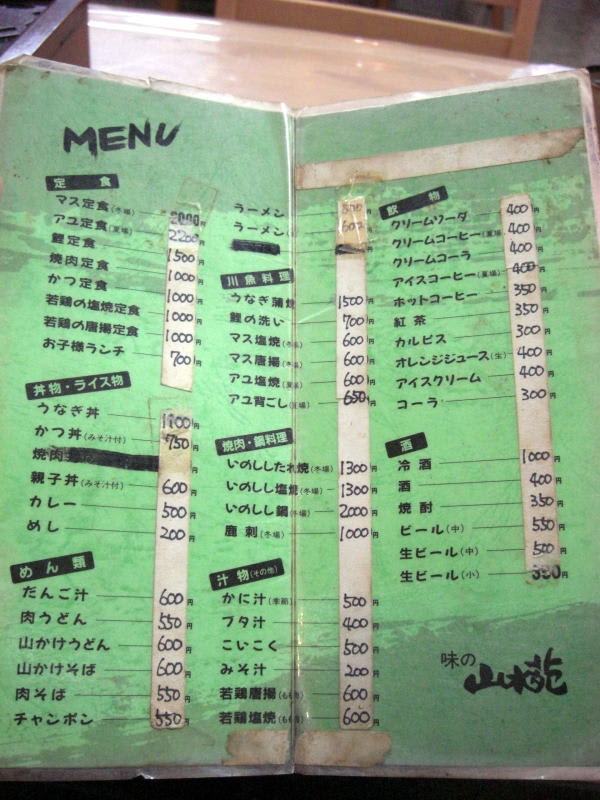 MENU
定食
マス定食(冬場) 2000円
アユ定食(夏場) 2200円
鯉定食 1500円
焼肉定食 1000円
かつ定食 1000円
若鶏の塩焼定食 1000円
若鶏の唐揚定食 1000円
お子様ランチ 700円
丼物・ライス物
うなぎ丼 1100円
かつ丼(みそ汁付) 750円
焼肉 円
親子丼(みそ汁付) 600円
カレー 500円
めし 200円
めん類
だんご汁 600円
肉うどん 550円
山かけうどん 600円
山かけそば 600円
肉そば 550円
チャンポン 550円
ラーメン 円
ラーメン 600円
川魚料理
うなぎ蒲焼 1500円
鯉の洗い 700円
マス塩焼(冬場) 600円
マス唐揚(冬場) 600円
アユ塩焼(夏場) 600円
アユ背ごし(夏場) 650円
焼肉・鍋料理
いのししたれ焼(冬場) 1300円
いのしし塩焼(冬場) 1300円
いのしし鍋(冬場) 2000円
鹿刺(冬場) 1000円
汁物(その他)
かに汁(季節) 500円
ブタ汁 400円
こいこく 500円
みそ汁 200円
若鶏唐揚(もも) 600円
若鶏塩焼(もも) 600円
飲物
クリームソーダ 400円
クリームコーヒー(夏場) 400円
クリームコーラ 400円
アイスコーヒー(夏場) 400円
ホットコーヒー 350円
紅茶 350円
カルピス 300円
オレンジジュース(生) 400円
アイスクリーム 400円
コーラ 300円
酒
冷酒 1000円
酒 400円
焼酎 350円
ビール(中) 550円
生ビール(中) 500円
生ビール(小) 円
味の